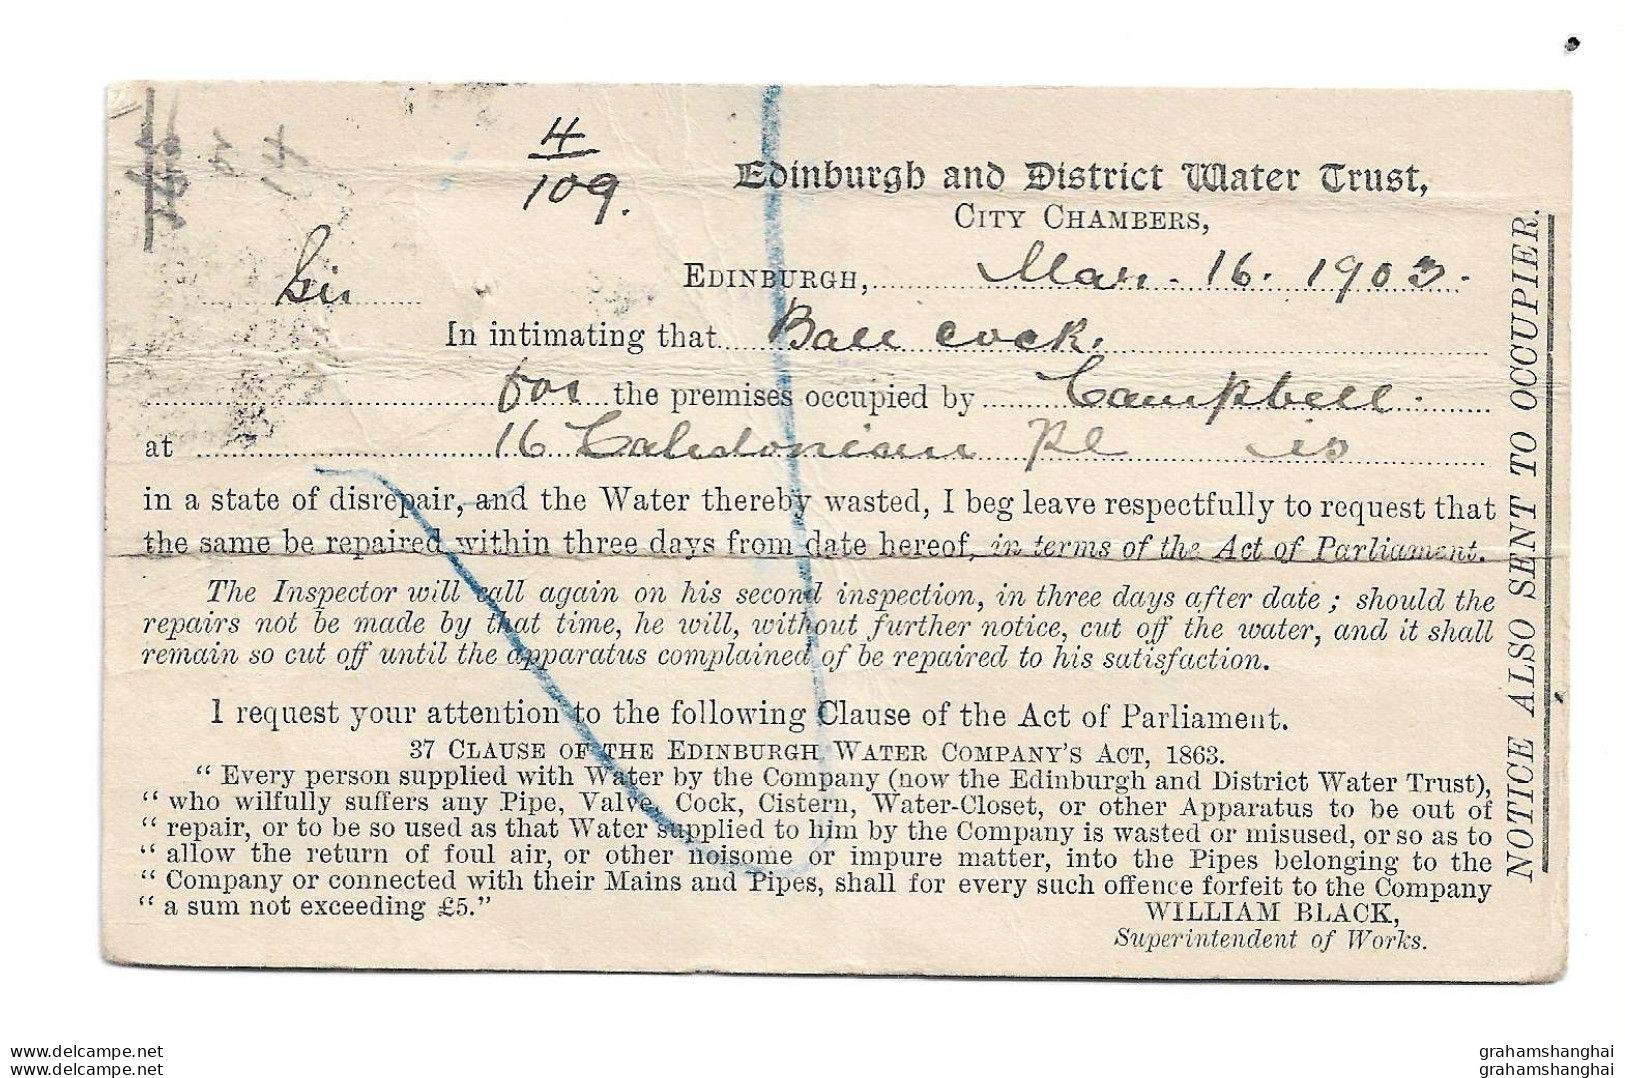 4
109.
Edinburgh and District Water Trust,
CITY CHAMBERS,
EDINBURGH, Mar. 16. 1903.
Sir
In intimating that Ball cock.
for the premises occupied by Campbell.
at 16 Caledonian Pl is
in a state of disrepair, and the Water thereby wasted, I beg leave respectfully to request that
the same be repaired within three days from date hereof, in terms of the Act of Parliament.
The Inspector will call again on his second inspection, in three days after date; should the
repairs not be made by that time, he will, without further notice, cut off the water, and it shall
remain so cut off until the apparatus complained of be repaired to his satisfaction.
I request your attention to the following Clause of the Act of Parliament.
37 CLAUSE OF THE EDINBURGH WATER COMPANY'S ACT, 1863.
" Every person supplied with Water by the Company (now the Edinburgh and District Water Trust),
" who wilfully suffers any Pipe, Valve, Cock, Cistern, Water-Closet, or other Apparatus to be out of
" repair, or to be so used as that Water supplied to him by the Company is wasted or misused, or so as to
" allow the return of foul air, or other noisome or impure matter, into the Pipes belonging to the
" Company or connected with their Mains and Pipes, shall for every such offence forfeit to the Company
" a sum not exceeding £5."
WILLIAM BLACK,
Superintendent of Works.
NOTICE ALSO SENT TO OCCUPIER.
www.delcampe.net
www.delcampe.net
grahamshanghai
grahamshanghai